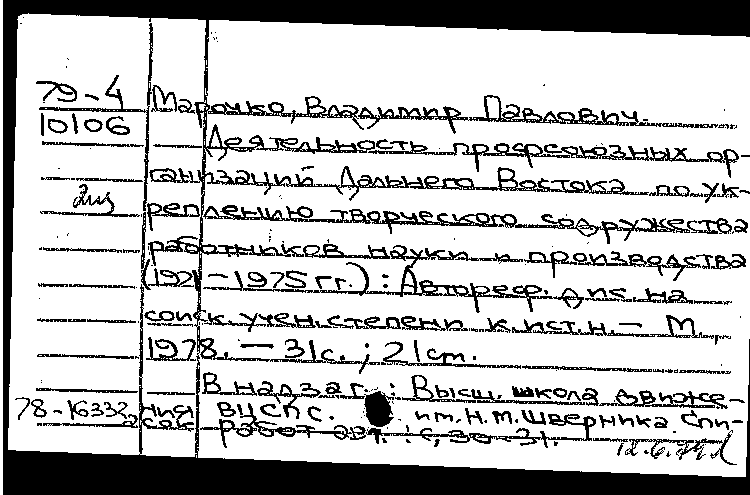 79-4 Марочко, Владимир Павлович.
10106 Деятельность профсоюзных ор-
ганизаций Дальнего Востока по ук-
реплению творческого содружества
работников науки и производства
(1971-1975 гг.) : Автореф. дис. на
соиск. учен. степени к. ист. н. - М.,
1978. - 31 с. ; 21 см.
В надзаг. : Высш. школа движе-
78-16332а ния ВЦСПС. им. Н.М. Шверника. Спи-
сок работ авт. : с. 30-31.
12.6.79